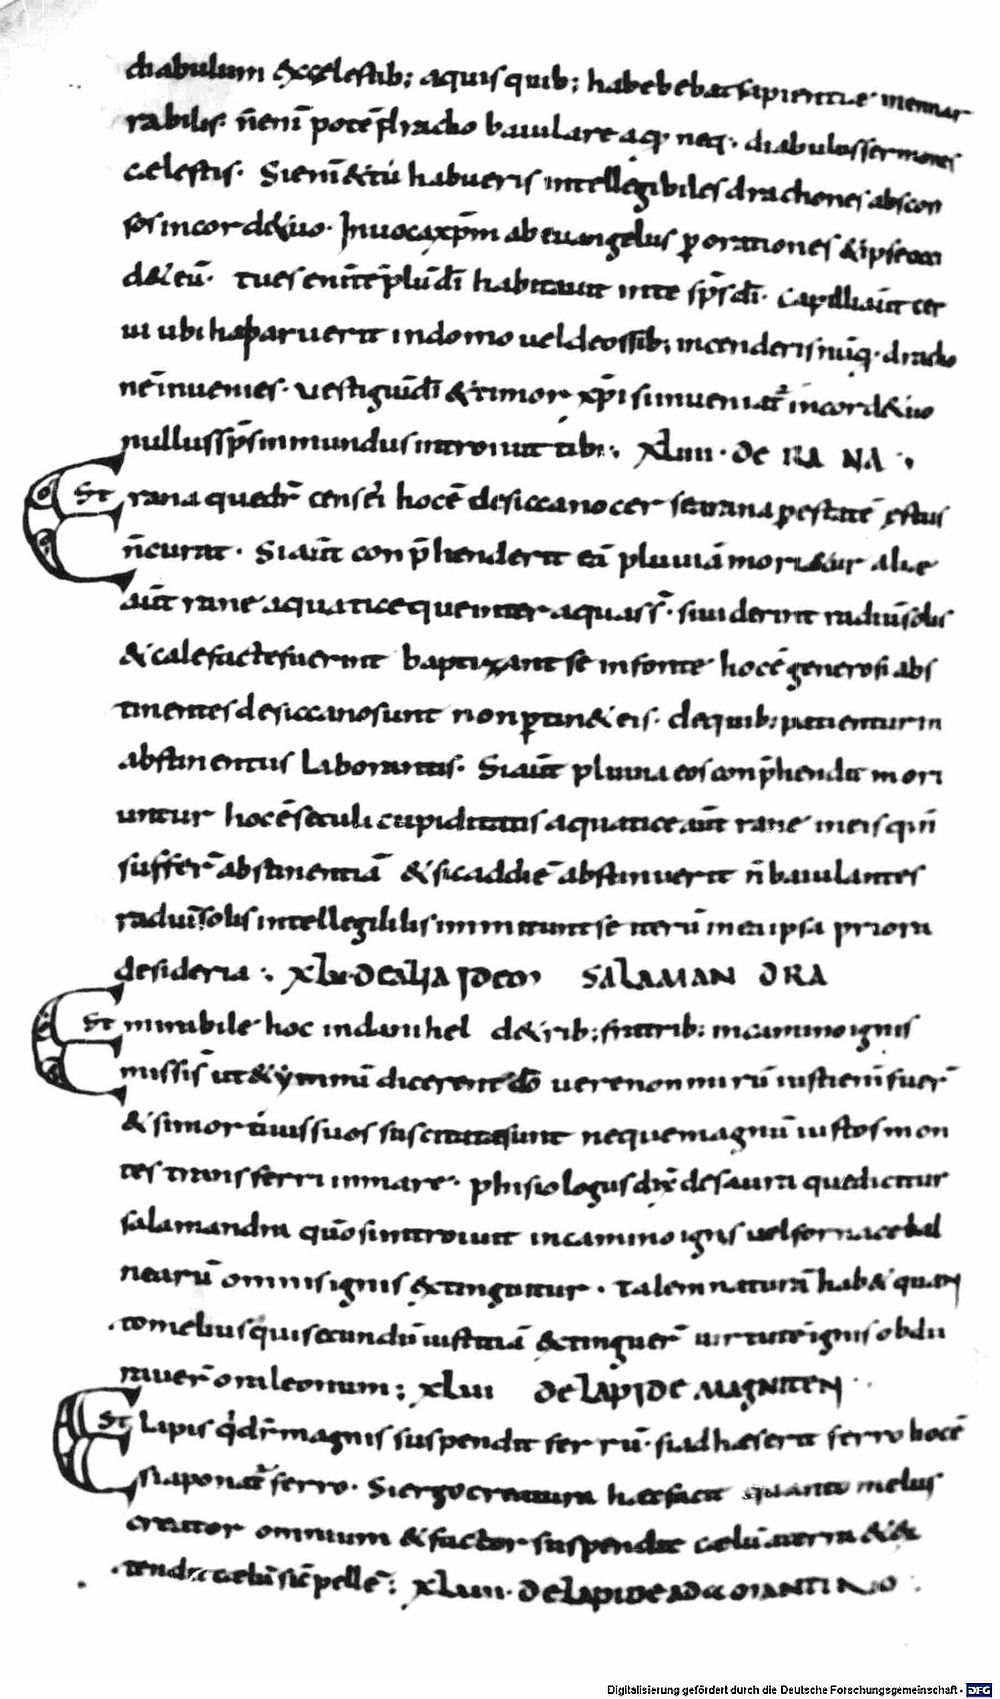 diabulum & cęlestib; aquis quib; habebebat sapientiae inennar
rabilis· n̄ enī potē dracho baiulare aq̄ neq· diabulus sermones
cęlestis· Si enī & tu habueris intellegibiles drachones abscon
sos in corde tuo· Inuoca xp̄m ab euangelus ꝑ orationes & ipse occi
d& eū· tu es enī tēplū dī habitauit in te sp̄s dī· Capilli aūt cer
ui ubi haparuerit in domo uel de ossib; incenderis nūq· dracho
nē inuenies· uestigiū dī & timor xp̄i si inueniat̄ in corde tuo
nullus sp̄s inmundus introiuit tibi; XLIIII· DE RANA·
Est rana que dr̄ censei hoc ē desiccano cer se rana pestatē estus
n̄ curat· Si aūt conp̄henderit eā pluuiā mori&ur aliae
aūt rane aquatice que inter aquas s̄· si uiderint radiū solis
& calefacte fuerint baptizant se in fonte hoc ē generosi abs
tinentes desiccano sunt non ꝑtin& eis· de quib; patientur in
abstinentiis laborantes· Si aūt pluuia eos conp̄hendit mori
untur hoc ē seculi cupiditatis aquatice aūt rane in eis qui n̄
sufferr̄ abstinentiā & sic ad diē abstinuerit n̄ baiulantes
raduī solis intellegibilis immittunt se iterū in ea ipsa priora
desideria; XLV· DE SALAMANDRA
Est mirabile hoc in danihel d& rib; fratrib; in camino ignis
missis ut & ymnū dicerent dō uere non mirū iusti enī fuer̄
& si mortuis suos suscitati sunt neque magnū iustos mon
tes transferri in mare· phisiologus dix̄ de saura que dicitur
salamandra quō si introiuit in camino ignis uel fornace bal
nearū omnis ignis extinguitur· Talem naturā hab& quam
to melius qui secundū iustitiā extinguer̄ uirtutē ignis obdu
rauer̄ ora leonum; XLVI DE LAPIDE MAGNITEN·
Est lapis q̄ dr̄ magnis suspendit ferrū· si adhęserit ferro hoc ē
si aponat̄ ferro· Si ergo creatura hęc facit quanto melius
creator omnium & factor suspendit cęlū a terra & ex
tendit cęlū sic̄ pellē; XLVII· DE LAPIDE ADAMANTINO:
Digitalisierung gefördert durch die Deutsche Forschungsgemeinschaft - DFG